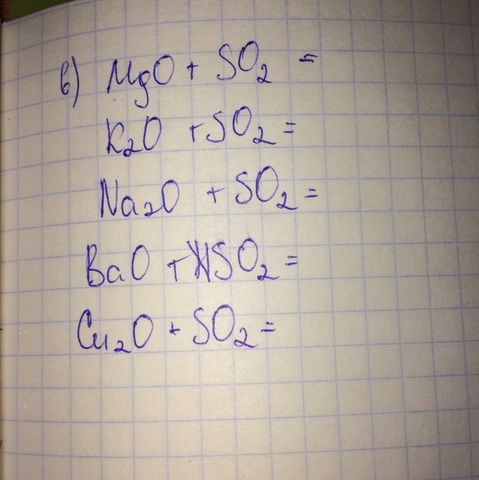 в) MgO + SO₂ =
K₂O + SO₂ =
Na₂O + SO₂ =
BaO + SO₂ =
Cu₂O + SO₂ =